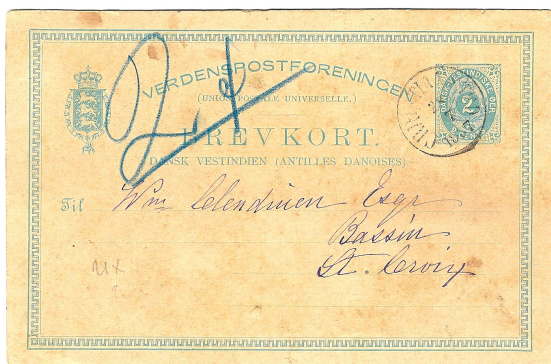 VERDENSPOSTFORENINGEN
(UNION POSTALE UNIVERSELLE.)
BREVKORT.
DANSK VESTINDIEN (ANTILLES DANOISES).
2
Til
Wm Clendinen Esqr
Bassin
St. Croix